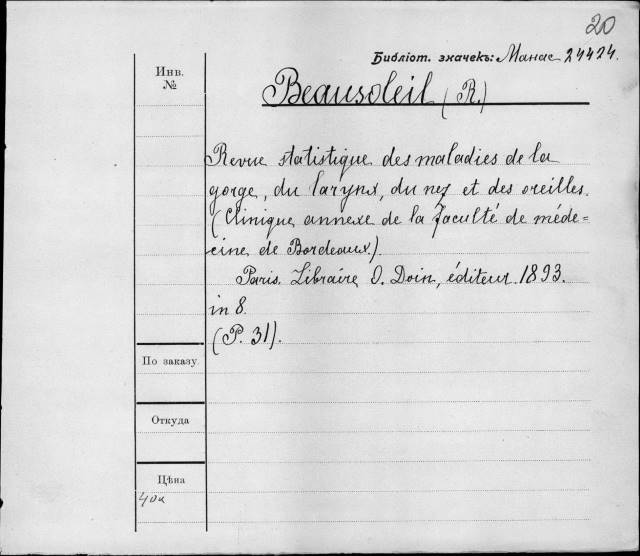 20
Библіот. значекъ: Манас 24424.
Инв.
№
Beausoleil (R.)
Revue statistique des maladies de la
gorge, du larynx, du nez et des oreilles.
(Clinique annexe de la Faculté de méde=
cine de Bordeaux).
Paris. Libraire O. Doin, éditeur. 1893.
in 8.
(P. 31).
По заказу.
Откуда
Цѣна
40к